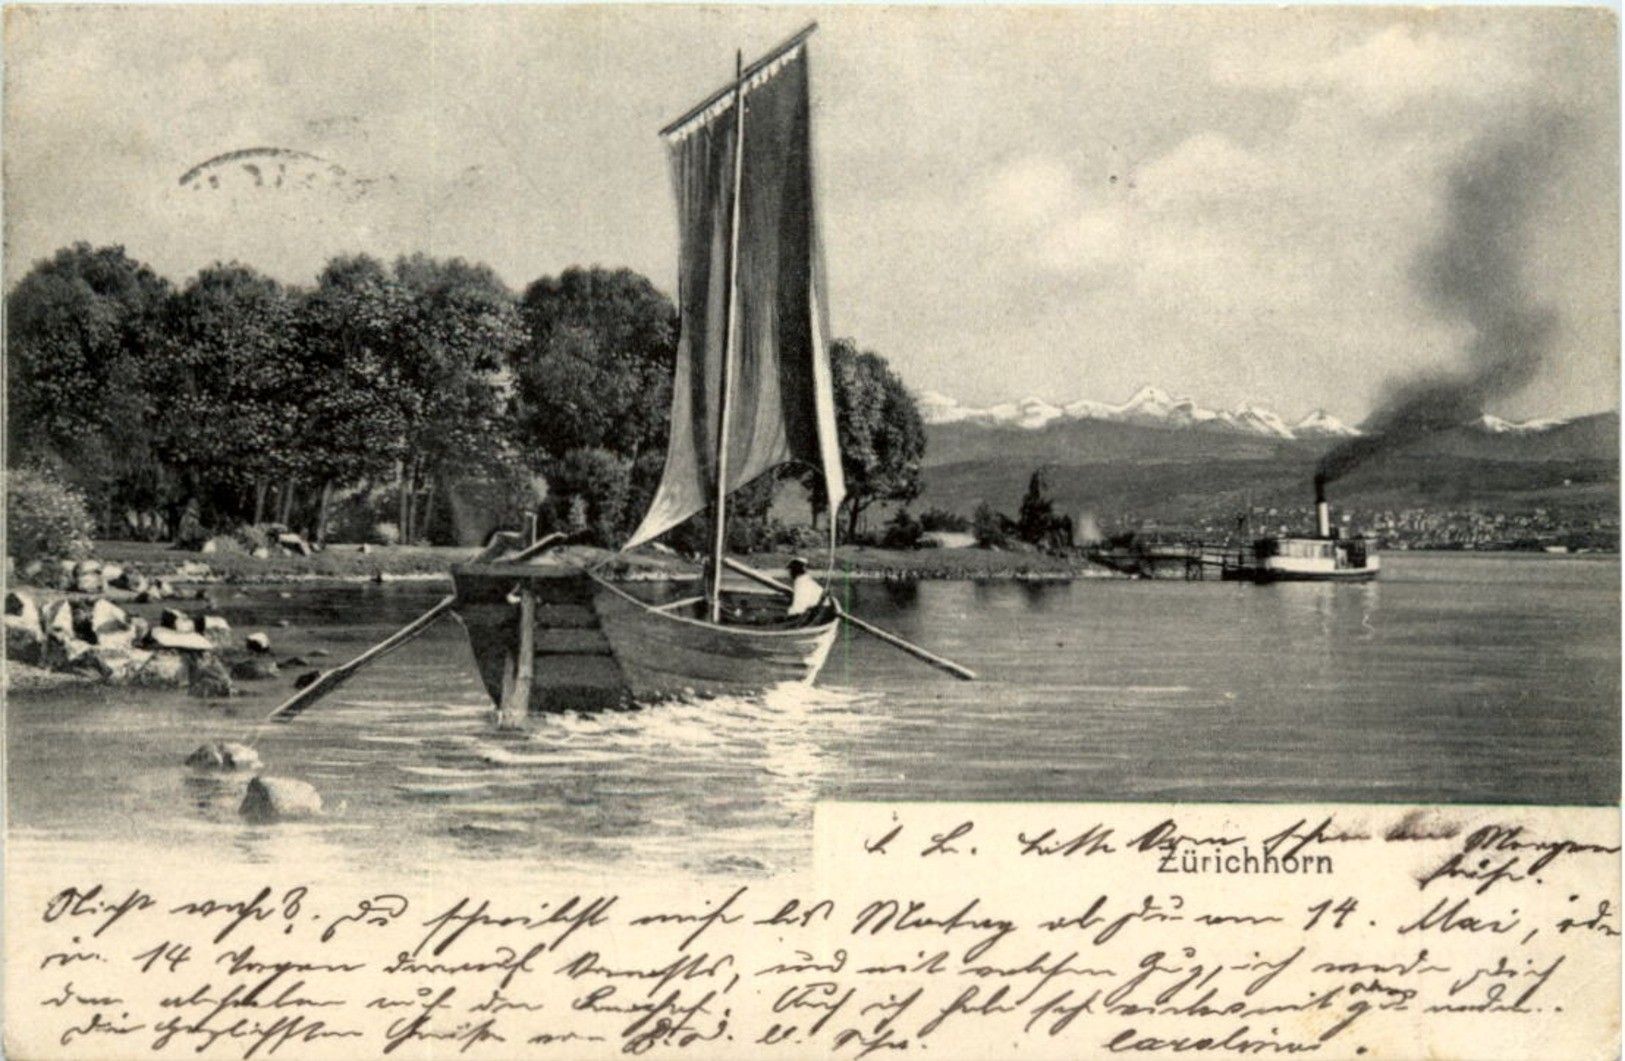 bitte komm schon am Morgen
früh.
Zürichhorn
Nicht wahr? Du schreibst mir bis Montag ob Du am 14. Mai, oder
in 14 Tagen darauf kommst, und mit welchem Zug, ich werde Dich
dann abholen auf den Bahnhof. Auch ich habe sehr vieles mit zu reden.
Die herzlichsten Grüsse von